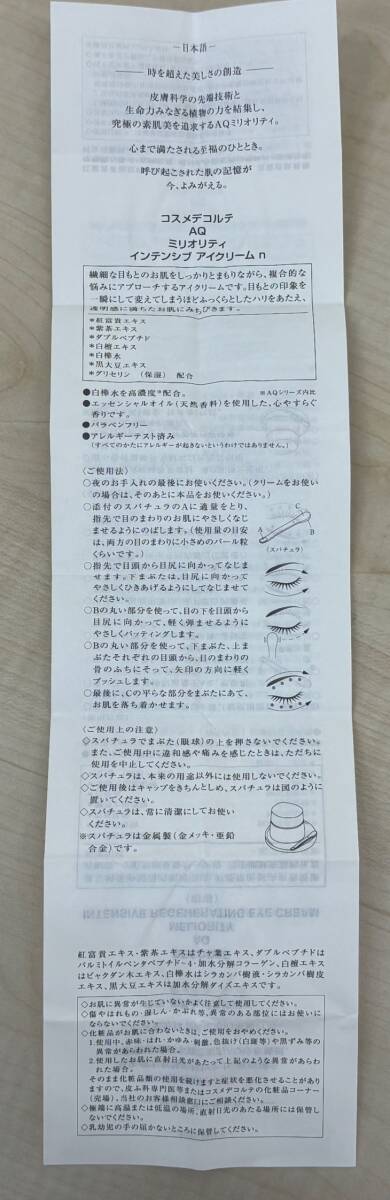 －日本語－
時を超えた美しさの創造
皮膚科学の先端技術と
生命力みなぎる植物の力を結集し、
究極の素肌美を追求するAQミリオリティ。
心まで満たされる至福のひととき。
呼び起こされた肌の記憶が
今、よみがえる。
コスメデコルテ
AQ
ミリオリティ
インテンシブ アイクリーム n
繊細な目もとのお肌をしっかりとまもりながら、複合的な
悩みにアプローチするアイクリームです。目もとの印象を
一瞬にして変えてしまうほどふっくらとしたハリをあたえ、
透明感に満ちたお肌にみちびきます。
＊紅富貴エキス
＊紫茶エキス
＊ダブルペプチド
＊白檀エキス
＊白樺水
＊黒大豆エキス
＊グリセリン （保湿） 配合
●白樺水を高濃度※配合。 ※AQシリーズ内比
●エッセンシャルオイル(天然香料)を使用した、心やすらぐ
香りです。
●パラベンフリー
●アレルギーテスト済み
(すべてのかたにアレルギーが起きないというわけではありません。)
〈ご使用法〉
○夜のお手入れの最後にお使いください。（クリームをお使い
の場合は、そのあとに本品をお使いください。）
○添付のスパチュラのAに適量をとり、
指先で目のまわりのお肌にやさしくなじ
ませるようにのばします。（使用量の目安
は、両方の目のまわりに小さめのパール粒
くらいです。）
C
A
B
(スパチュラ)
○指先で目頭から目尻に向かってなじま
せます。下まぶたは、目尻に向かって
やさしくひきあげるようにしてなじませて
ください。
○Bの丸い部分を使って、目の下を目頭から
目尻に向かって、軽く弾ませるように
やさしくパッティングします。
○Bの丸い部分を使って、下まぶた、上ま
ぶたそれぞれの目頭から、目のまわりの
骨のふちにそって、矢印の方向に軽く
プッシュします。
○最後に、Cの平らな部分をまぶたにあて、
お肌を落ち着かせます。
〈ご使用上の注意〉
◇スパチュラでまぶた(眼球)の上を押さないでください。
また、ご使用中に違和感や痛みを感じたときは、ただちに
使用を中止してください。
◇スパチュラは、本来の用途以外には使用しないでください。
◇ご使用後はキャップをきちんとしめ、スパチュラは図のように
置いてください。
◇スパチュラは、常に清潔にしてお使い
ください。
※スパチュラは金属製(金メッキ・亜鉛
合金)です。
AQ
MELIORITY
INTENSIVE REGENERATING EYE CREAM
紅富貴エキス・紫茶エキスはチャ葉エキス、ダブルペプチドは
パルミトイルペンタペプチド-4・加水分解コラーゲン、白檀エキス
はビャクダン木エキス、白樺水はシラカンバ樹液・シラカンバ樹皮
エキス、黒大豆エキスは加水分解ダイズエキスです。
◇お肌に異常が生じていないかよく注意して使用してください。
◇傷やはれもの・湿しん・かぶれ等、異常のある部位にはお使いに
ならないでください。
◇化粧品がお肌に合わないときは、ご使用をおやめください。
1.使用中、赤味・はれ・かゆみ・刺激、色抜け(白斑等)や黒ずみ等の
異常があらわれた場合。
2.使用したお肌に直射日光があたって上記のような異常があらわ
れた場合。
そのまま化粧品類の使用を続けますと症状を悪化させることがあり
ますので、皮ふ科専門医等またはコスメデコルテの化粧品コーナー
(売場)、当社のお客様相談窓口にご相談ください。
◇極端に高温または低温の場所、直射日光のあたる場所には保管し
ないでください。
◇乳幼児の手の届かないところに保管してください。